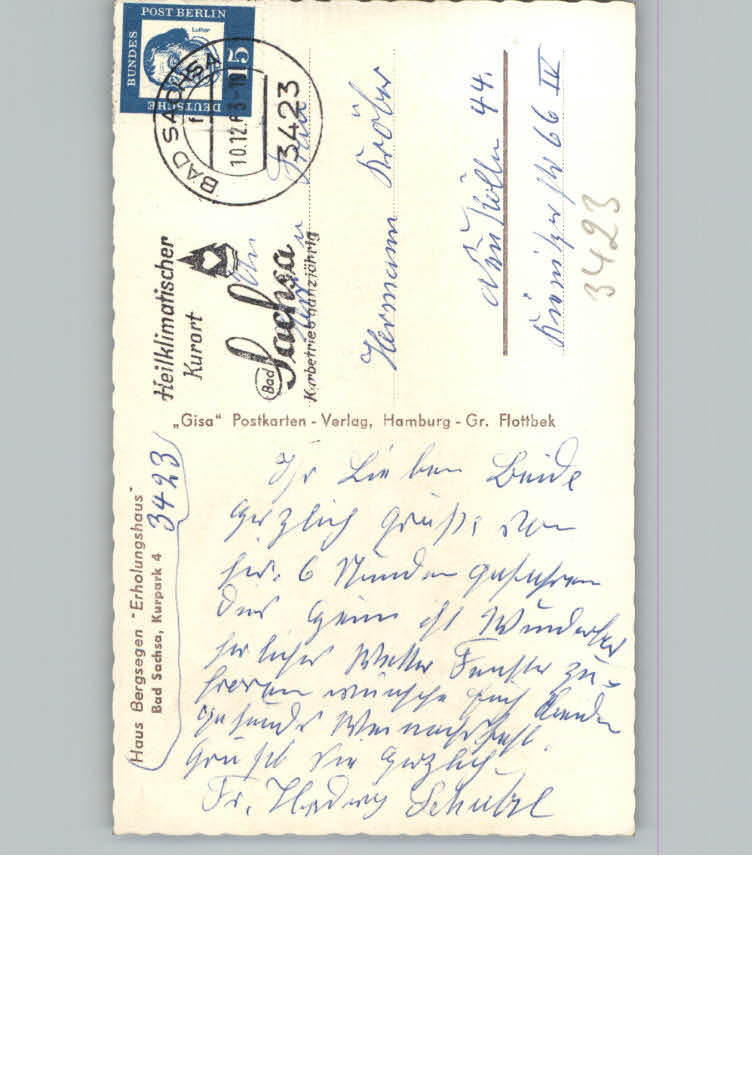 DEUTSCHE
BUNDES
POST BERLIN
Luther
15
BAD SACHSA
10.12.63-18
3423
Heilklimatischer
Kurort
Bad Sachsa
Kurbetrieb ganzjährig
Hermann Kröber
Neukölln 44.
66 IV
3423
„Gisa“ Postkarten - Verlag, Hamburg - Gr. Flottbek
Haus Bergsegen "Erholungshaus"
Bad Sachsa, Kurpark 4
3423
Ihr Lieben Beide
Herzlich Grüße von
hir. 6 Stunden gefahren
Das Heim ist Wunderbar
herliches Wetter Fenster zu-
froren wünsche Euch beiden
gesunds Weinachsfest.
Grüßt Sie Herzlich
Fr. Hedwig Schulze